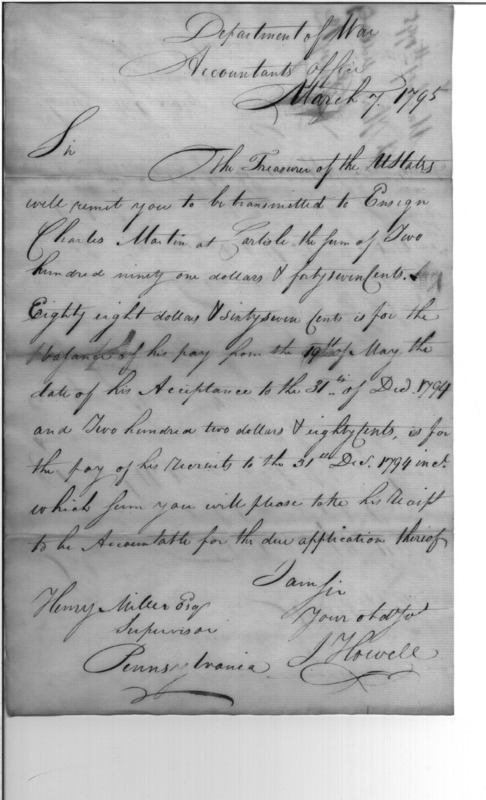 Department of War
Accountants office
March 7. 1795
Sir
The Treasurer of the UStates
will remit you to be transmitted to Ensign
Charles Martin at Carlisle, the sum of Two
hundred ninety one dollars & forty seven Cents.
Eighty eight dollars & sixty seven Cents is for the
balance of his pay from the 19th of May the
date of his Acceptance to the 31st of Decd. 1794
and Two hundred two dollars & eighty Cents, is for
the pay of his recruits to the 31st Decr. 1794 incl.
which sum you will please take his reciept
to be Accountable for the due application thereof
I am Sir
Your obdt. Svt.
J Howell
Henry Miller Esq
Supervisor
Pennsylvania